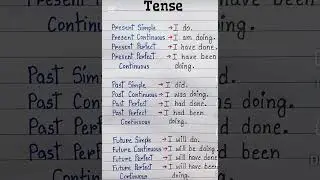 Tense
Present Simple → I do.
Present Continuous → I am doing.
Present Perfect → I have done.
Present Perfect → I have been
Continuous doing.
Past Simple → I did.
Past Continuous → I was doing.
Past Perfect → I had done.
Past Perfect → I had been
Continuous doing.
Future Simple → I will do.
Future Continuous → I will be doing
Future Perfect → I will have done
Future Perfect → I will have been
Continuous doing.